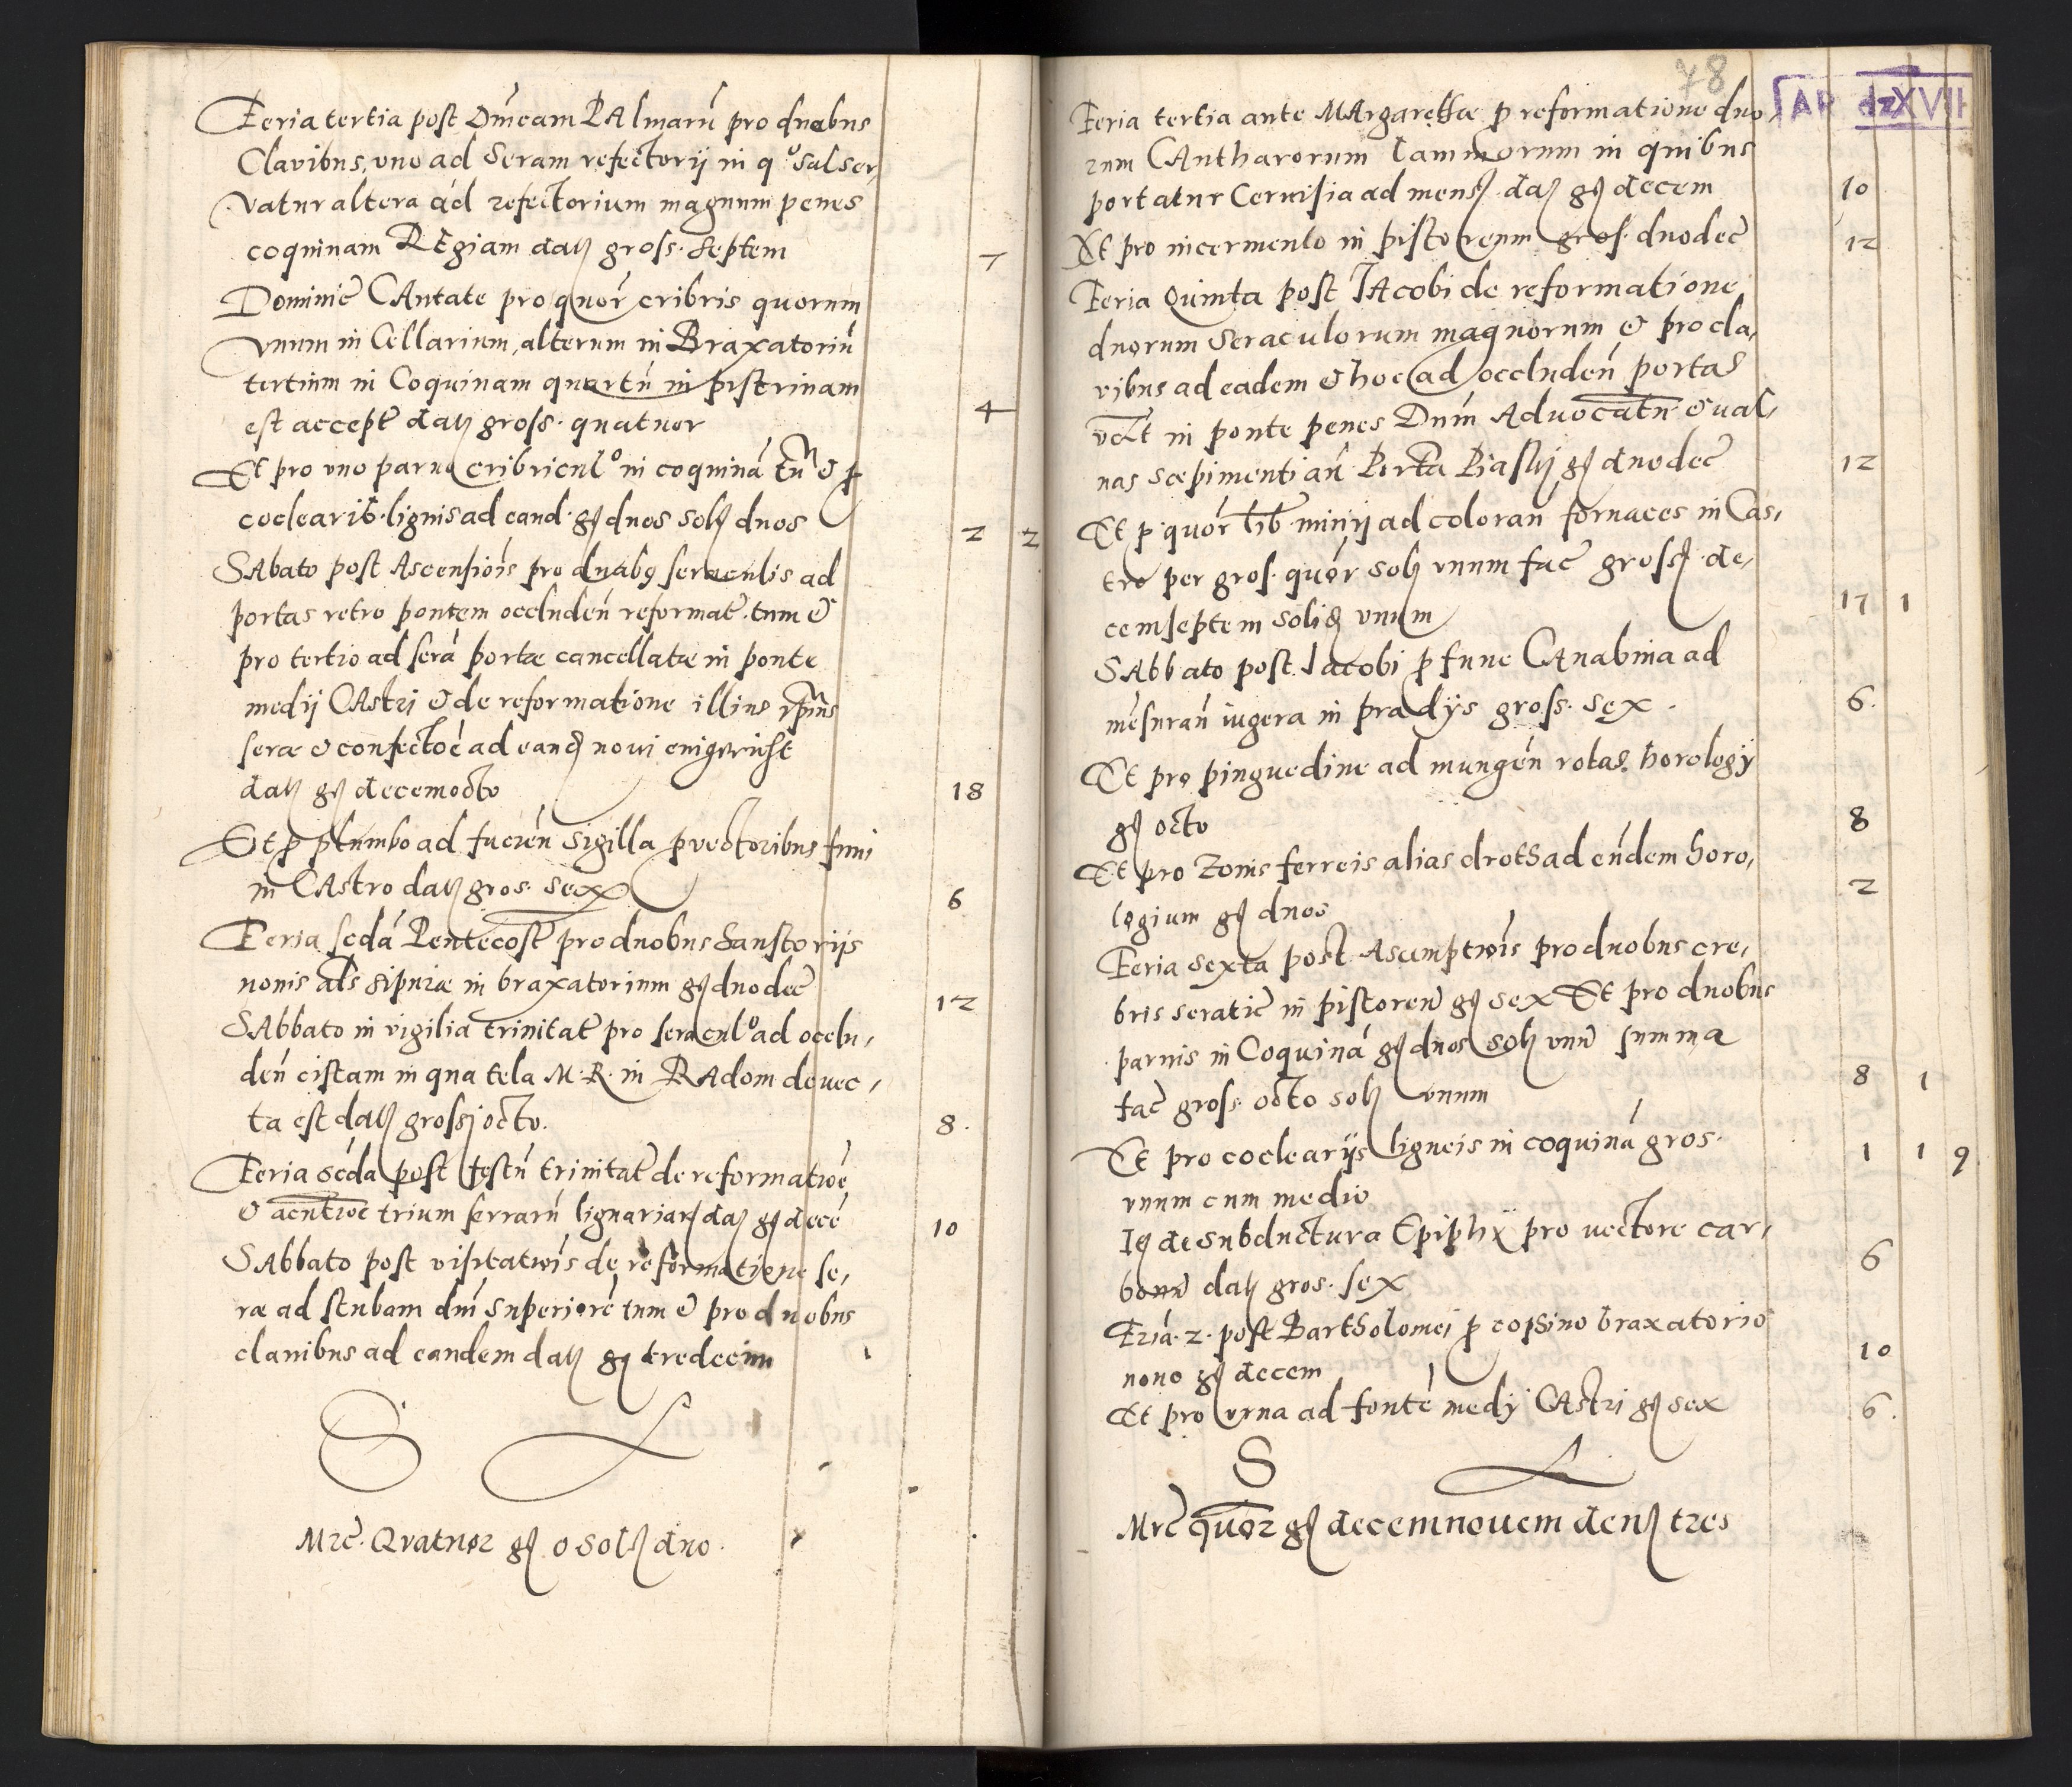 Feria tertia post Dnícam PAlmarú pro duabus
Clavibus, uno ad Seram refectorij in qº sal ser,
vatur altera ad refectorium magnum penes
coquinam REgiam datꝫ gross. septem 7
Dominic̃ CAntate pro quór cribris quorum
vnum in Cellarium, alterum in Braxatoriú
tertium in Coquinam quartú in pistrinam
est accept̃ datꝫ gross. quatuor 4
Et pro uno paruo cribricul⁰ in coquiná tú et p
coclearib. lignis ad eand. gꝭ duos solꝭ duos 2 2
SAbato post Ascensióis pro duabꝫ seraculis ad
portas retro pontem occludeń reformat̃. tum et
pro tertio ad será portæ cancellatæ in ponte
medij CAstri et de reformatione illius
seræ et confectóe ad eandꝭ noui
datꝫ gꝭ decemocto 18
Et p plumbo ad fucień sigilla pvectoribus fimi
in CAstro datꝫ gros. sex 6
Feria scdá Pentecost̃ pro duobus haustorijs
nouis als sipuræ in braxatorium gꝭ duodec̃ 12
SAbbato in vigilia trinitat̃ pro seracul⁰ ad occlu,
deń cistam in qua tela M. R. in RAdom devec,
ta est datꝫ grossꝭ octo. 8.
Feria scda post festú trinitat̃ de reformatióe
et acutióe trium serrarú lignariarꝭ datꝫ gꝭ decé 10
SAbbato post visitatióis de reformatione se,
ræ ad stubam dni superioré tum et pro duobus
clauibus ad eandem datꝫ gꝭ tredecim
S L
Mrc̃. Qvatuor gꝭ 0 solꝭ duo.
78
AR dz XVIII
Feria tertia ante MArgarethæ p reformatione duo,
rum CAntharorum in quibus
portatur Ceruisia ad mensꝭ. datꝫ gꝭ decem 10
Et pro incermento in pistoreum gros. duodec̃ 12
Feria Quinta post IAcobi de reformatione
duorum Seraculorum magnorum et pro cla,
vibus ad eadem et hoc ad occludeń portas
in ponte penes Dnm Aduocatú et val,
nas scepimenti añ Porta Piastij gꝭ duodec̃ 12
Et p quór lib. minij ad coloran̄ fornaces in Cas,
tro per gros. quór solꝫ vnum fac̃ grossꝭ. de,
cemseptem solidꝭ vnum 17 1
SAbbato post Iacobi p fune CAnabina ad
mẽsuran̄ iugera in prædijs gross. sex. 6.
Et pro pinguedine ad mungeń rotas horologij
gꝭ octo 8
Et pro Zonis ferreis alias droth ad eńdem horo,
logium gꝭ duos 2
Feria sexta post Asumptióis pro duobus cre,
bris seratic̃ in pistoreu gꝭ sex Et pro duobus
paruis in Coquiná gꝭ duos solꝫ vnu summa
fac̃ gross. octo solꝫ vnum 8 1
Et pro coclearijs ligneis in coquiná gros.
vnum cum medio 1 1 9
Itꝫ de subductura Epiphij pro vectore car,
bonu datꝫ gros. sex 6
Feriá. 2. post Bartholomei p cophino braxatorio
nouo gꝭ decem 10
Et pro vrna ad fonté medij CAstri gꝭ sex 6.
S L
Mrc̃ quór gꝭ decemnouem denꝭ tres